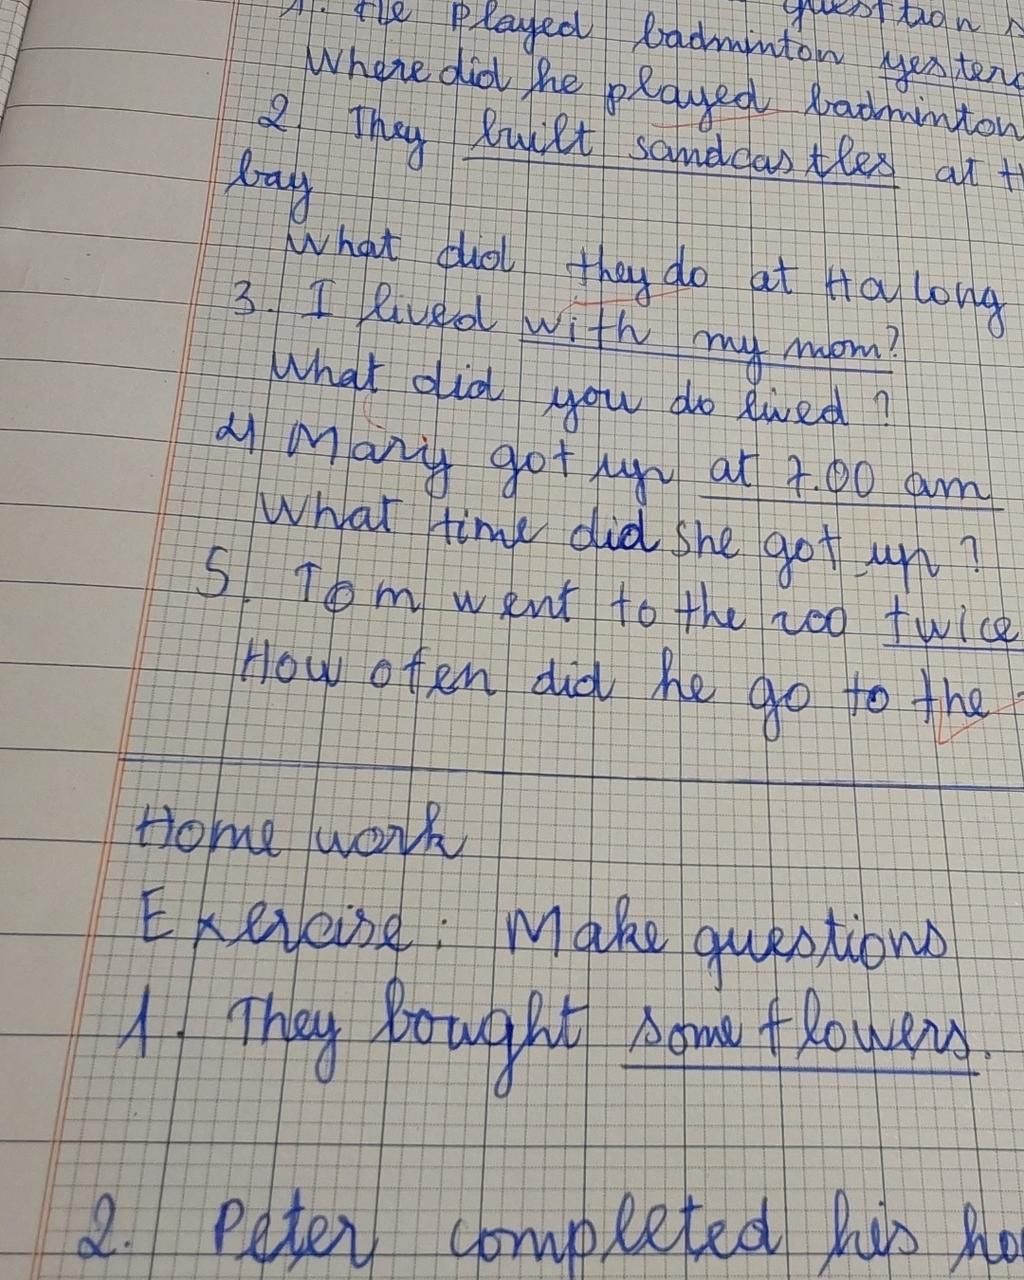 1. He played badminton
Where did he played badminton
2. They built sandcastles at
bay
What did they do at Ha long
3. I lived with my mom?
What did you do lived?
4. Mariy got up at 7.00 am
What time did she got up?
5. Tom went to the zoo twice
How often did he go to the
Home work
Exercise: Make questions
1. They bought some flowers.
2. Peter completed his